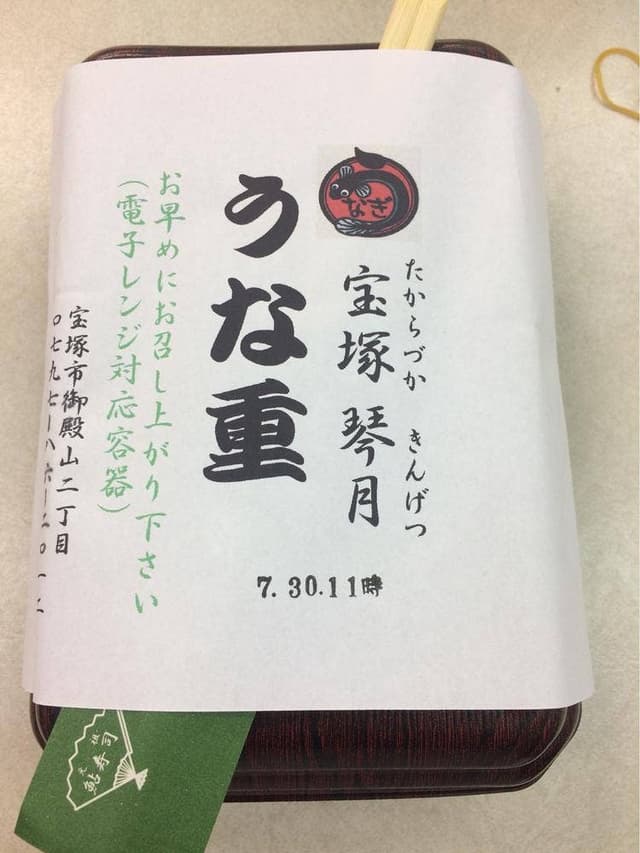 なぎ
たからづか きんげつ
宝塚 琴月
うな重
お早めにお召し上がり下さい
(電子レンジ対応容器)
宝塚市御殿山二丁目
〇七九七ー八六ー二〇一二
7.30.11時
鮎寿司